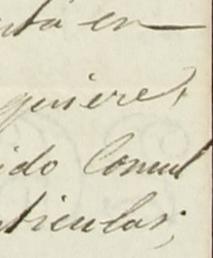 en
quiere,
ido Consul
ticular;